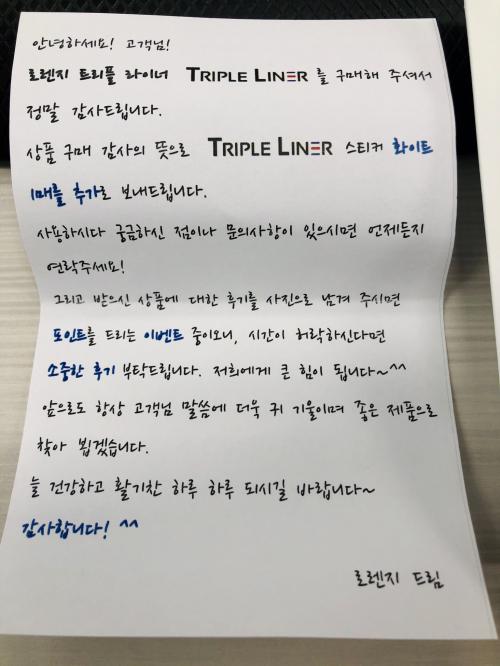 안녕하세요! 고객님!
로렌지 트리플 라이너 TRIPLE LINER 를 구매해 주셔서
정말 감사드립니다.
상품 구매 감사의 뜻으로 TRIPLE LINER 스티커 화이트
1매를 추가로 보내드립니다.
사용하시다 궁금하신 점이나 문의사항이 있으시면 언제든지
연락주세요!
그리고 받으신 상품에 대한 후기를 사진으로 남겨 주시면
포인트를 드리는 이벤트 중이오니, 시간이 허락하신다면
소중한 후기 부탁드립니다. 저희에게 큰 힘이 됩니다~^^
앞으로도 항상 고객님 말씀에 더욱 귀 기울이며 좋은 제품으로
찾아 뵙겠습니다.
늘 건강하고 활기찬 하루 하루 되시길 바랍니다~
감사합니다! ^^
로렌지 드림